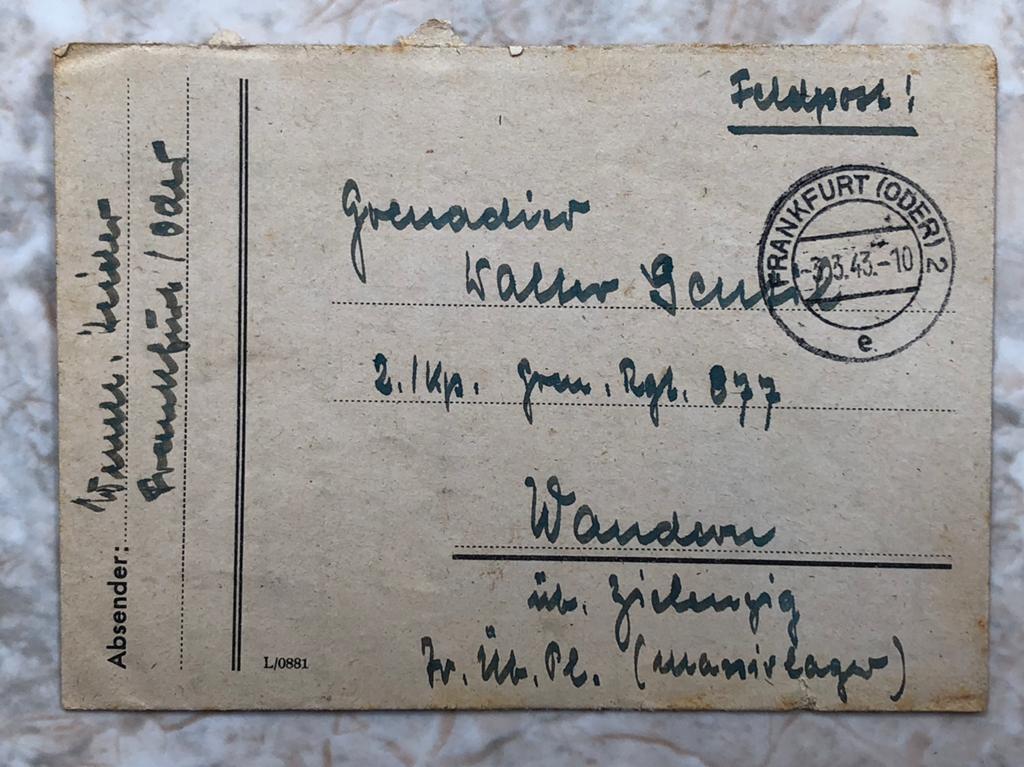 Feldpost!
FRANKFURT (ODER) 2
-3.3.43.-10
e
Grenadier
Walter
2./Kp. Gren. Rgt. 877
Wandern
üb. Zielenzig
Tr. Üb. Pl. (Massivlager)
L/0881
Absender:
Frankfürt / Oder